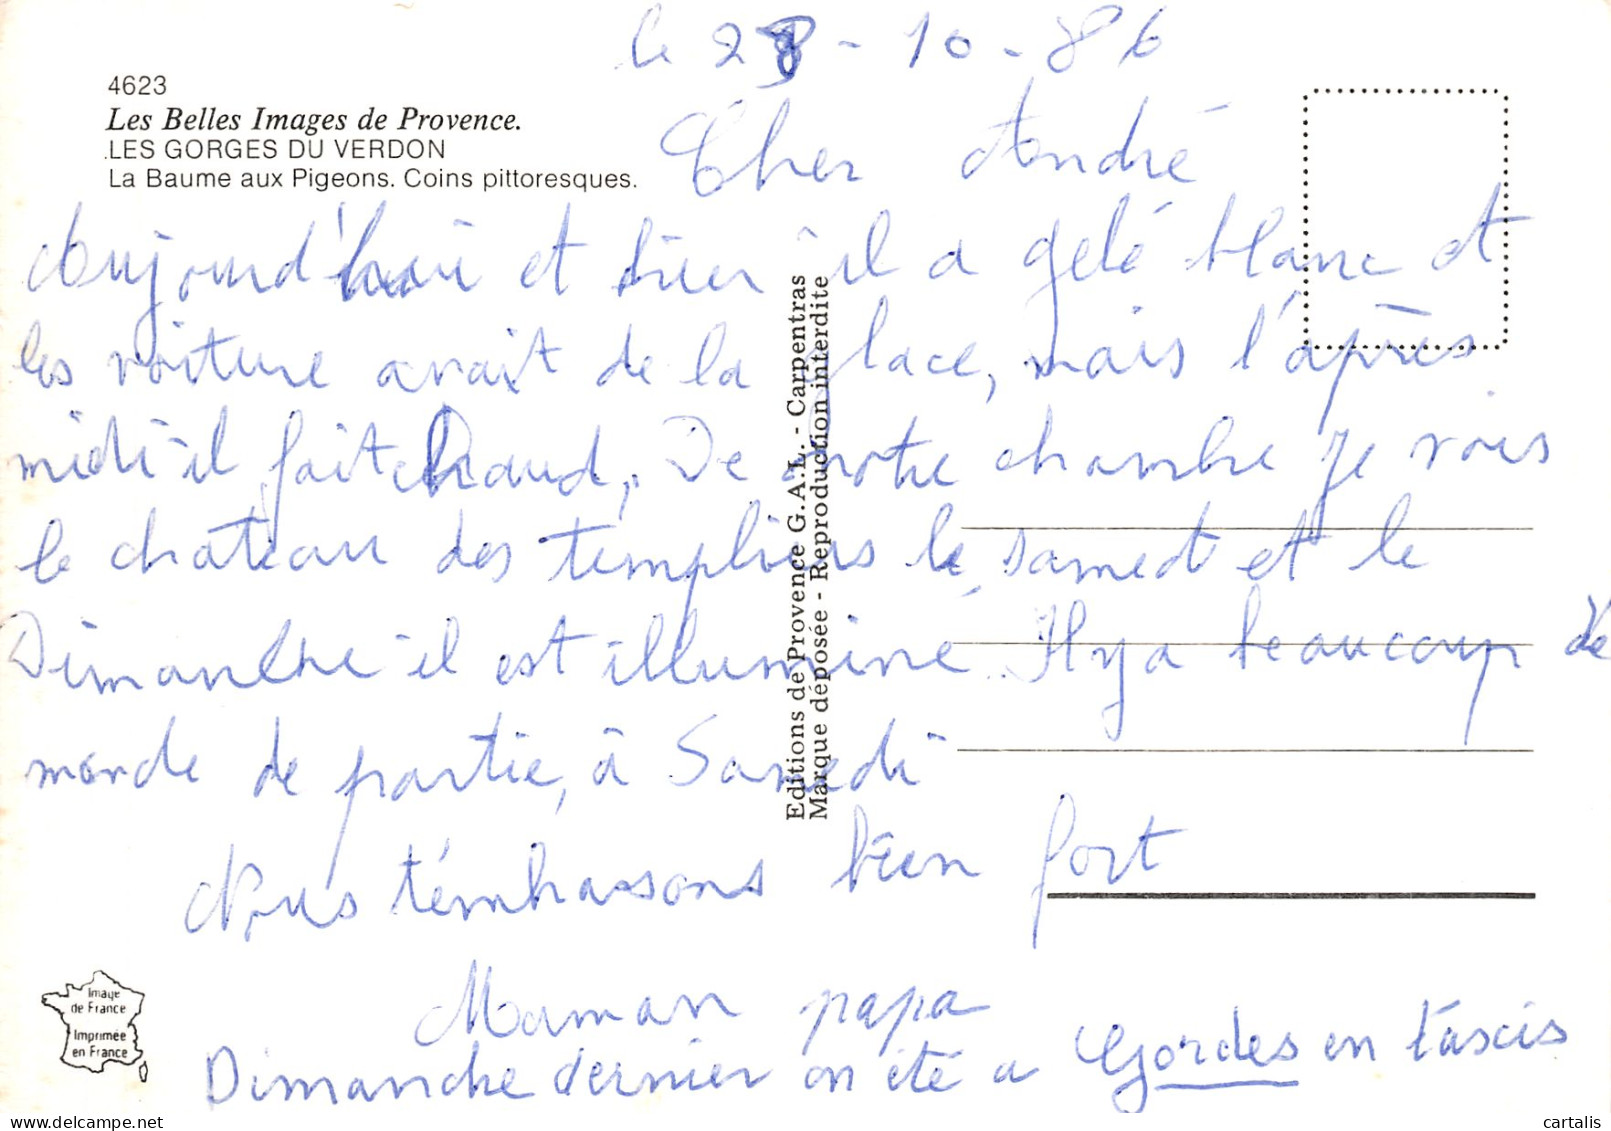 le 28-10-86
4623
Les Belles Images de Provence.
.LES GORGES DU VERDON
La Baume aux Pigeons. Coins pittoresques.
Cher André
Aujourd'hui et hier il a gelé blanc et
les voiture avait de la glace, mais l'après
midi il fait chaud, De notre chambre je vois
le chateau des templiers le samedi et le
Dimanche il est illuminé. Il y a beaucoup de
monde de partie, à Samedi
Nous t'émbrassons bien fort
Maman papa
Dimanche dernier on été a Gordes en
Editions de Provence G.A.L. - Carpentras
Marque déposée - Reproduction interdite
Image
de France
Imprimée
en France
delcampe.net
cartalis